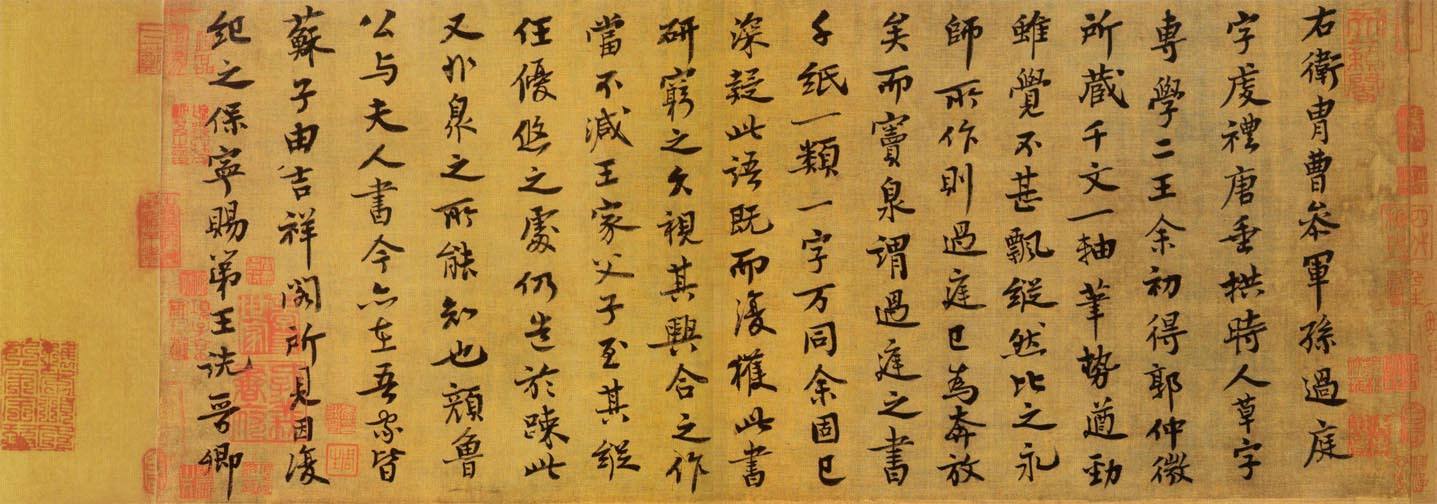 右衛胄曹叅軍孫過庭
字虔禮唐垂拱時人草字
専學二王余初得郭仲微
所蔵千文一軸筆勢遒勁
雖覺不甚飄縱然比之永
師所作則過庭已為奔放
矣而竇泉謂過庭之書
千紙一類一字万同余固已
深疑此語既而復獲此書
研窮之久視其興合之作
當不減王家父子至其縱
任優悠之處仍造於踈此
又非泉之所能知也顔魯
公与夫人書今亦在吾家皆
蘇子由吉祥閣所見因復
紀之保寧賜第王詵晉卿